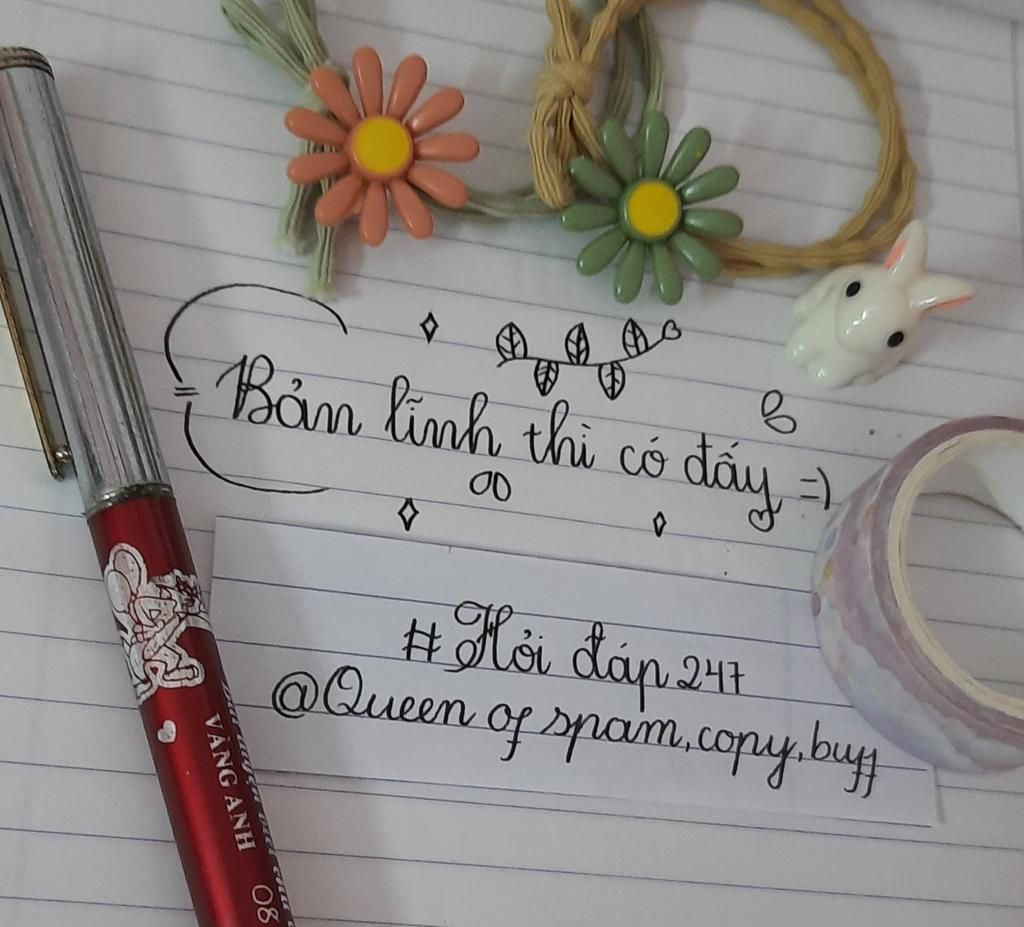 Bản lĩnh thì có đấy =)
#Hỏi đáp 247
@Queen of spam, copy, buff
VÀNG ANH
08